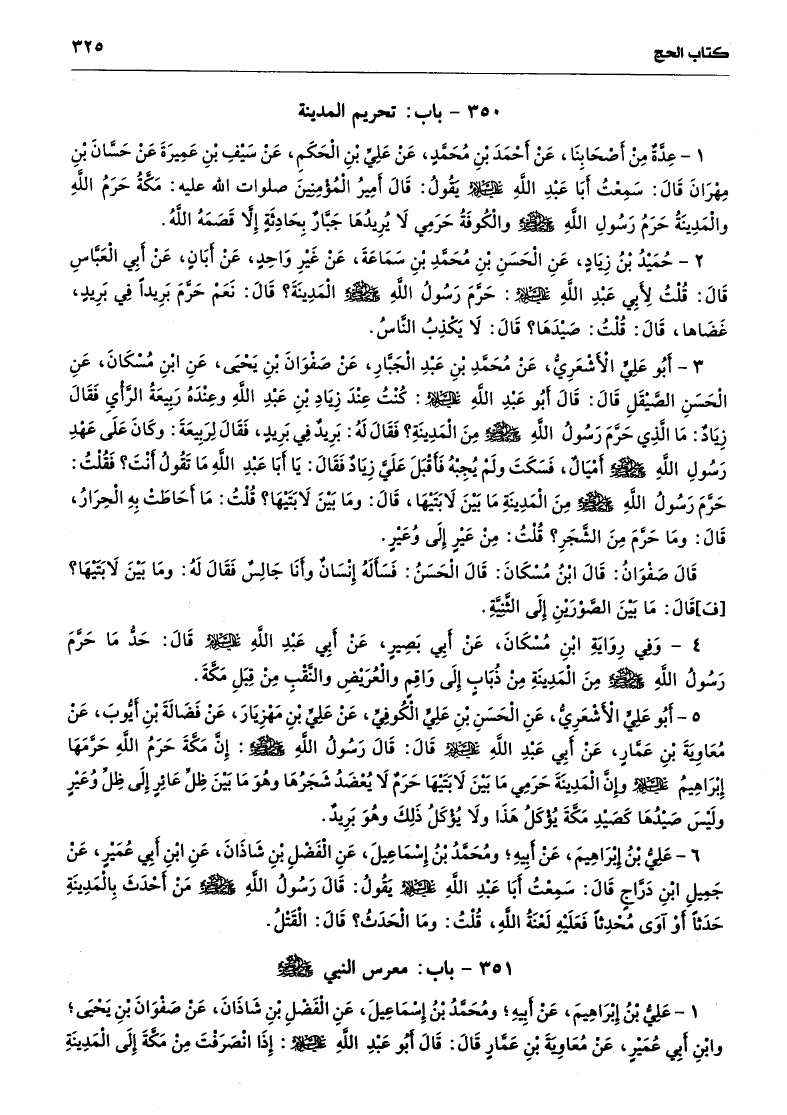 كتاب الحج ٣٢٥
٣٥٠ - باب: تحريم المدينة
١ - عِدَّةٌ مِنْ أَصْحَابِنَا، عَنْ أَحْمَدَ بْنِ مُحَمَّدٍ، عَنْ عَلِيِّ بْنِ الْحَكَمِ، عَنْ سَيْفِ بْنِ عَمِيرَةَ عَنْ حَسَّانَ بْنِ
مِهْرَانَ قَالَ: سَمِعْتُ أَبَا عَبْدِ اللَّهِ عَلَيْهِ السَّلَامُ يَقُولُ: قَالَ أَمِيرُ الْمُؤْمِنِينَ صلوات الله عليه: مَكَّةُ حَرَمُ اللَّهِ
والْمَدِينَةُ حَرَمُ رَسُولِ اللَّهِ ﷺ والْكُوفَةُ حَرَمِي لَا يُرِيدُهَا جَبَّارٌ بِحَادِثَةٍ إِلَّا قَصَمَهُ اللَّهُ.
٢ - حُمَيْدُ بْنُ زِيَادٍ، عَنِ الْحَسَنِ بْنِ مُحَمَّدِ بْنِ سَمَاعَةَ، عَنْ غَيْرِ وَاحِدٍ، عَنْ أَبَانٍ، عَنْ أَبِي الْعَبَّاسِ
قَالَ: قُلْتُ لِأَبِي عَبْدِ اللَّهِ عَلَيْهِ السَّلَامُ: حَرَّمَ رَسُولُ اللَّهِ ﷺ الْمَدِينَةَ؟ قَالَ: نَعَمْ حَرَّمَ بَرِيداً فِي بَرِيدٍ،
غَضَاهَا، قَالَ: قُلْتُ: صَيْدَهَا؟ قَالَ: لَا يَكْذِبُ النَّاسُ.
٣ - أَبُو عَلِيٍّ الْأَشْعَرِيُّ، عَنْ مُحَمَّدِ بْنِ عَبْدِ الْجَبَّارِ، عَنْ صَفْوَانَ بْنِ يَحْيَى، عَنِ ابْنِ مُسْكَانَ، عَنِ
الْحَسَنِ الصَّيْقَلِ قَالَ: قَالَ أَبُو عَبْدِ اللَّهِ عَلَيْهِ السَّلَامُ: كُنْتُ عِنْدَ زِيَادِ بْنِ عَبْدِ اللَّهِ وعِنْدَهُ رَبِيعَةُ الرَّأْيِ فَقَالَ
زِيَادٌ: مَا الَّذِي حَرَّمَ رَسُولُ اللَّهِ ﷺ مِنَ الْمَدِينَةِ؟ فَقَالَ لَهُ: بَرِيدٌ فِي بَرِيدٍ، فَقَالَ لِرَبِيعَةَ: وكَانَ عَلَى عَهْدِ
رَسُولِ اللَّهِ ﷺ أَمْيَالٌ، فَسَكَتَ ولَمْ يُجِبْهُ فَأَقْبَلَ عَلَيَّ زِيَادٌ فَقَالَ: يَا أَبَا عَبْدِ اللَّهِ مَا تَقُولُ أَنْتَ؟ فَقُلْتُ:
حَرَّمَ رَسُولُ اللَّهِ ﷺ مِنَ الْمَدِينَةِ مَا بَيْنَ لَابَتَيْهَا، قَالَ: ومَا بَيْنَ لَابَتَيْهَا؟ قُلْتُ: مَا أَحَاطَتْ بِهِ الْحِرَارُ،
قَالَ: ومَا حَرَّمَ مِنَ الشَّجَرِ؟ قُلْتُ: مِنْ عَيْرٍ إِلَى وُعَيْرٍ.
قَالَ صَفْوَانُ: قَالَ ابْنُ مُسْكَانَ: قَالَ الْحَسَنُ: فَسَأَلَهُ إِنْسَانٌ وأَنَا جَالِسٌ فَقَالَ لَهُ: ومَا بَيْنَ لَابَتَيْهَا؟
[فَ]قَالَ: مَا بَيْنَ الصَّوْرَيْنِ إِلَى الثَّنِيَّةِ.
٤ - وَفِي رِوَايَةِ ابْنِ مُسْكَانَ، عَنْ أَبِي بَصِيرٍ، عَنْ أَبِي عَبْدِ اللَّهِ عَلَيْهِ السَّلَامُ قَالَ: حَدُّ مَا حَرَّمَ
رَسُولُ اللَّهِ ﷺ مِنَ الْمَدِينَةِ مِنْ ذُبَابٍ إِلَى وَاقِمٍ والْعُرَيْضِ والنَّقْبِ مِنْ قِبَلِ مَكَّةَ.
٥ - أَبُو عَلِيٍّ الْأَشْعَرِيُّ، عَنِ الْحَسَنِ بْنِ عَلِيٍّ الْكُوفِيِّ، عَنْ عَلِيِّ بْنِ مَهْزِيَارَ، عَنْ فَضَالَةَ بْنِ أَيُّوبَ، عَنْ
مُعَاوِيَةَ بْنِ عَمَّارٍ، عَنْ أَبِي عَبْدِ اللَّهِ عَلَيْهِ السَّلَامُ قَالَ: قَالَ رَسُولُ اللَّهِ ﷺ: إِنَّ مَكَّةَ حَرَمُ اللَّهِ حَرَّمَهَا
إِبْرَاهِيمُ عَلَيْهِ السَّلَامُ وإِنَّ الْمَدِينَةَ حَرَمِي مَا بَيْنَ لَابَتَيْهَا حَرَمٌ لَا يُعْضَدُ شَجَرُهَا وهُوَ مَا بَيْنَ ظِلِّ عَائِرٍ إِلَى ظِلِّ وُعَيْرٍ
ولَيْسَ صَيْدُهَا كَصَيْدِ مَكَّةَ يُؤْكَلُ هَذَا ولَا يُؤْكَلُ ذَلِكَ وهُوَ بَرِيدٌ.
٦ - عَلِيُّ بْنُ إِبْرَاهِيمَ، عَنْ أَبِيهِ؛ ومُحَمَّدُ بْنُ إِسْمَاعِيلَ، عَنِ الْفَضْلِ بْنِ شَاذَانَ، عَنِ ابْنِ أَبِي عُمَيْرٍ، عَنْ
جَمِيلِ ابْنِ دَرَّاجٍ قَالَ: سَمِعْتُ أَبَا عَبْدِ اللَّهِ عَلَيْهِ السَّلَامُ يَقُولُ: قَالَ رَسُولُ اللَّهِ ﷺ مَنْ أَحْدَثَ بِالْمَدِينَةِ
حَدَثاً أَوْ آوَى مُحْدِثاً فَعَلَيْهِ لَعْنَةُ اللَّهِ، قُلْتُ: ومَا الْحَدَثُ؟ قَالَ: الْقَتْلُ.
٣٥١ - باب: معرس النبي ﷺ
١ - عَلِيُّ بْنُ إِبْرَاهِيمَ، عَنْ أَبِيهِ؛ ومُحَمَّدُ بْنُ إِسْمَاعِيلَ، عَنِ الْفَضْلِ بْنِ شَاذَانَ، عَنْ صَفْوَانَ بْنِ يَحْيَى؛
وابْنِ أَبِي عُمَيْرٍ، عَنْ مُعَاوِيَةَ بْنِ عَمَّارٍ قَالَ: قَالَ أَبُو عَبْدِ اللَّهِ عَلَيْهِ السَّلَامُ: إِذَا انْصَرَفْتَ مِنْ مَكَّةَ إِلَى الْمَدِينَةِ